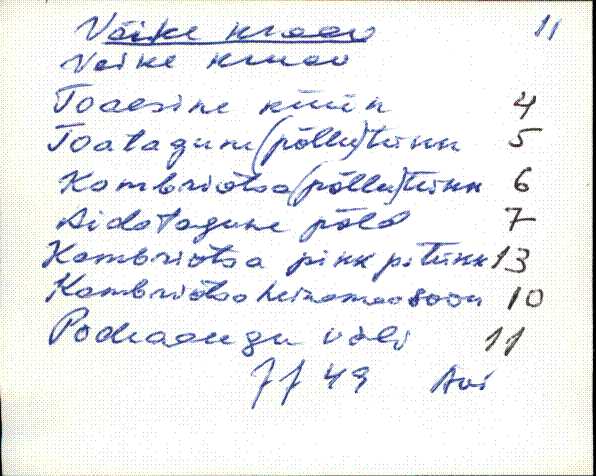 Väike kraav 11
Veike kraav
Toaesine küün 4
Toatagune (põllu)tükk 5
Kambriotsa (põllu)tükk 6
Aidatagune põld 7
Kambriotsa pikk p. tükk 13
Kambriotsa heinamaasoon 10
Podraaugu väli 11
49 Avi